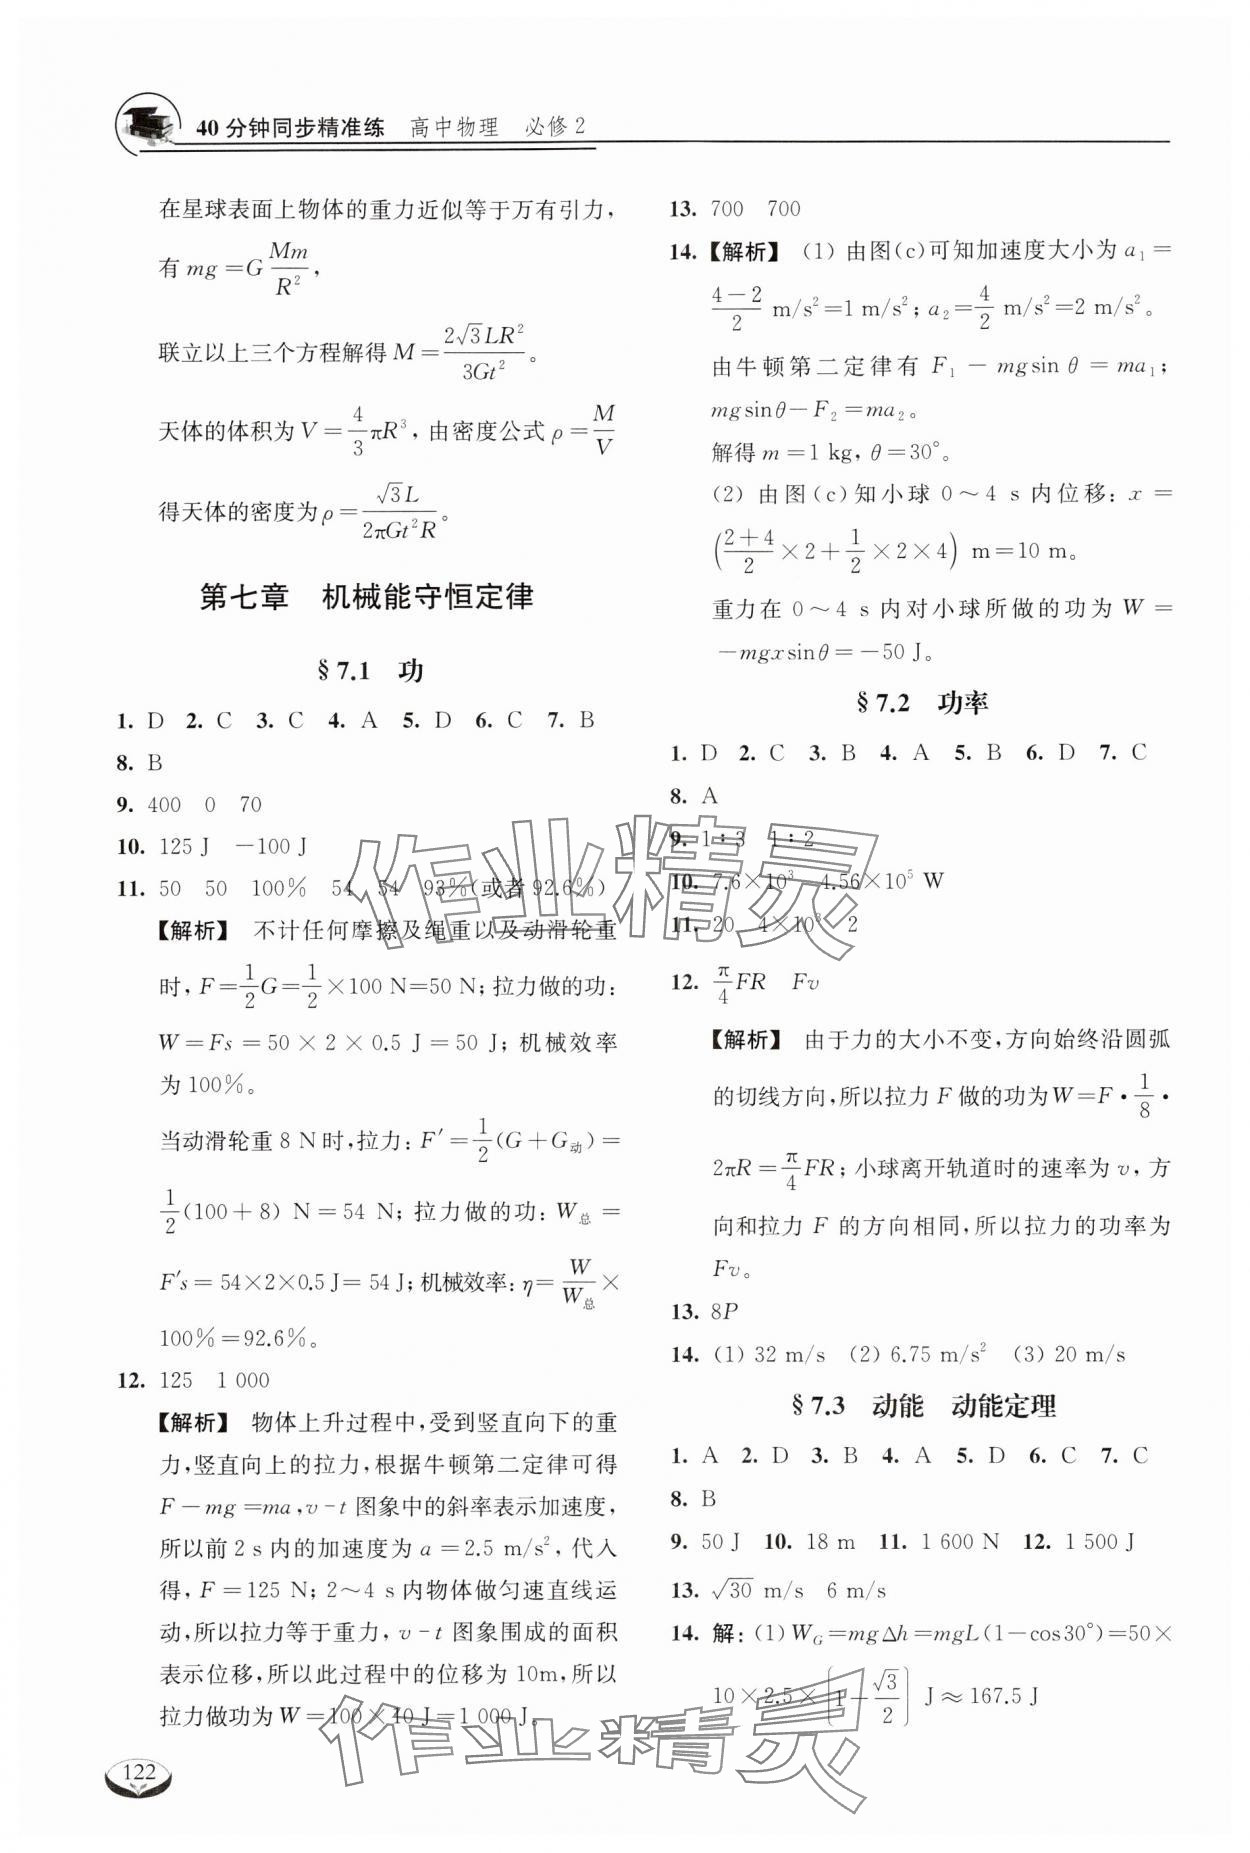 40分钟同步精准练 高中物理 必修2
在星球表面上物体的重力近似等于万有引力,
有 mg=G\frac{Mm}{R^2},
联立以上三个方程解得 M=\frac{2\sqrt{3}LR^2}{3Gt^2}。
天体的体积为 V=\frac{4}{3}πR^3, 由密度公式 ρ=\frac{M}{V}
得天体的密度为 ρ=\frac{\sqrt{3}L}{2πGt^2R}。
第七章 机械能守恒定律
§7.1 功
1. D 2. C 3. C 4. A 5. D 6. C 7. B
8. B
9. 400 0 70
10. 125 J −100 J
11. 50 50 100% 54 54 93%(或者92.6%)
【解析】 不计任何摩擦及绳重以及动滑轮重
时, F=\frac{1}{2}G=\frac{1}{2}×100 N=50 N; 拉力做的功:
W=Fs=50×2×0.5 J=50 J; 机械效率
为100%。
当动滑轮重8 N时, 拉力: F′=\frac{1}{2}(G+G动)=
\frac{1}{2}(100+8) N=54 N; 拉力做的功: W总=
F′s=54×2×0.5 J=54 J; 机械效率: η=\frac{W}{W总}×
100%=92.6%。
12. 125 1 000
【解析】 物体上升过程中, 受到竖直向下的重
力, 竖直向上的拉力, 根据牛顿第二定律可得
F−mg=ma, v-t 图象中的斜率表示加速度,
所以前2 s内的加速度为 a=2.5 m/s², 代入
得, F=125 N; 2~4 s内物体做匀速直线运
动, 所以拉力等于重力, v-t 图象围成的面积
表示位移, 所以此过程中的位移为10m, 所以
拉力做功为 W=100×10 J=1 000 J。
122
13. 700 700
14. 【解析】 (1) 由图(c)可知加速度大小为 a₁=
\frac{4−2}{2} m/s²=1 m/s²; a₂=\frac{4}{2} m/s²=2 m/s²。
由牛顿第二定律有 F₁−mgsin θ=ma₁;
mgsinθ−F₂=ma₂。
解得 m=1 kg, θ=30°。
(2) 由图(c)知小球0~4 s内位移: x=
(\frac{2+4}{2}×2+\frac{1}{2}×2×4) m=10 m。
重力在0~4 s内对小球所做的功为 W=
−mgxsinθ=−50 J。
§7.2 功率
1. D 2. C 3. B 4. A 5. B 6. D 7. C
8. A
9. 1∶3 1∶2
10. 7.6×10³ 4.56×10⁵ W
11. 20 4×10³ 2
12. \frac{π}{4}FR Fv
【解析】 由于力的大小不变, 方向始终沿圆弧
的切线方向, 所以拉力 F 做的功为W=F·\frac{1}{8}·
2πR=\frac{π}{4}FR; 小球离开轨道时的速率为 v, 方
向和拉力 F 的方向相同, 所以拉力的功率为
Fv。
13. 8P
14. (1) 32 m/s (2) 6.75 m/s² (3) 20 m/s
§7.3 动能 动能定理
1. A 2. D 3. B 4. A 5. D 6. C 7. C
8. B
9. 50 J 10. 18 m 11. 1 600 N 12. 1 500 J
13. \sqrt{30} m/s 6 m/s
14. 解: (1) W_G=mgΔh=mgL(1−cos30°)=50×
10×2.5×(1−\frac{\sqrt{3}}{2}) J≈167.5 J
作业精灵
作业精灵